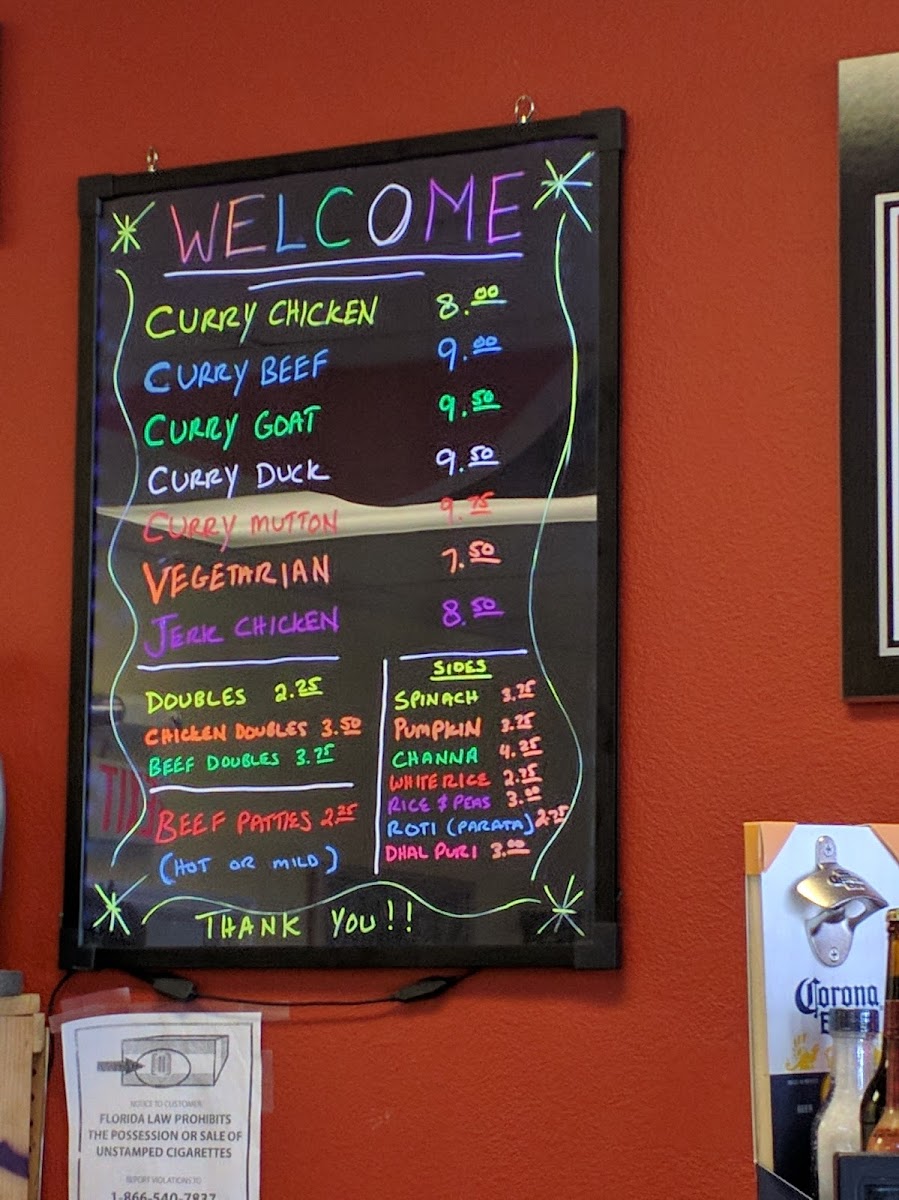 WELCOME
CURRY CHICKEN 8.00
CURRY BEEF 9.00
CURRY GOAT 9.50
CURRY DUCK 9.50
CURRY MUTTON 9.75
VEGETARIAN 7.50
JERK CHICKEN 8.50
DOUBLES 2.25
CHICKEN DOUBLES 3.50
BEEF DOUBLES 3.75
BEEF PATTIES 2.25
(HOT OR MILD)
SIDES
SPINACH 3.75
PUMPKIN 3.75
CHANNA 4.25
WHITE RICE 2.75
RICE & PEAS 3.00
ROTI (PARATA) 2.75
DHAL PURI 3.00
THANK YOU!!
NOTICE TO CUSTOMER:
FLORIDA LAW PROHIBITS
THE POSSESSION OR SALE OF
UNSTAMPED CIGARETTES
REPORT VIOLATIONS TO
1-866-540-7837
Corona